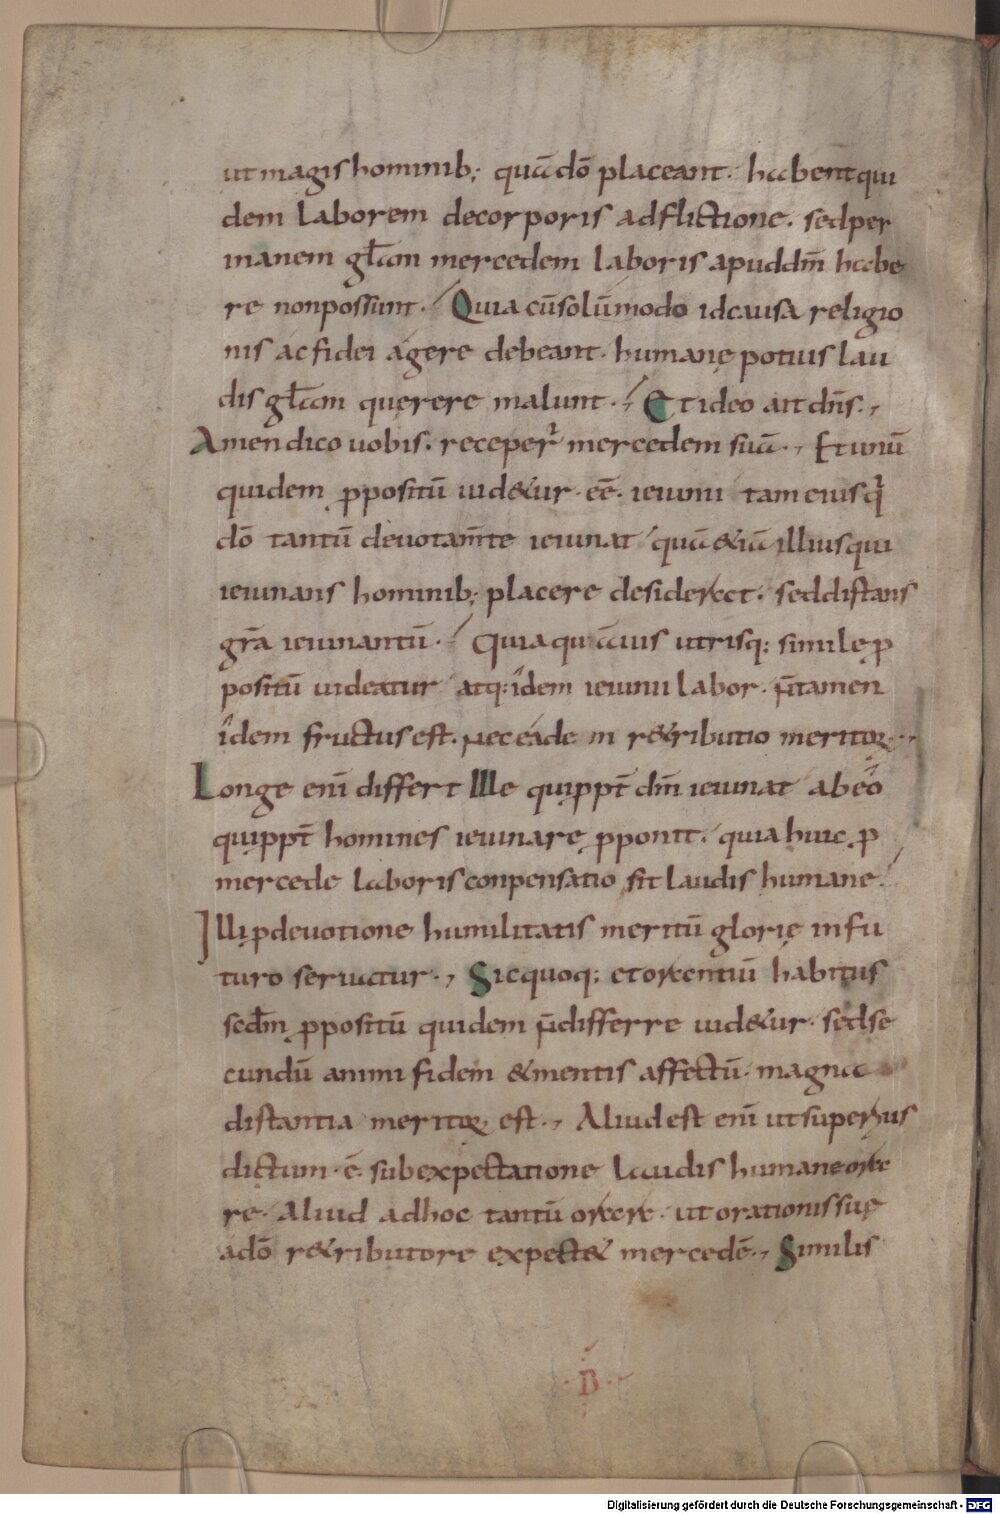 ut magis hominib; quā dō placeant. habent qui
dem laborem de corporis adflictione. sed per
inanem gl̄am mercedem laboris apud dm̄ habe
re non possunt. Quia cū solūmodo id causa religio
nis ac fidei agere debeant. humanę potius lau
dis gl̄am quęrere malunt. Et ideo ait dn̄s.
Amen dico uobis. receper̄ mercedem suā. Et unū
quidem ꝓpositū uid&ur. eē. ieiunii tam eius q̄
dō tantū deuotam̄te ieiunat quā &iā illius qui
ieiunans hominib; placere desiderat. sed distans
gr̄a ieiunantū. Quia quāuis utrisq; simile ꝓ
positū uideatur atq; idem ieiunii labor. n̄ tamen
idem fructus est. nec eadē in r&ributio meritoꝝ.
Longe enī differt Ille qui ppt̄ dm̄ ieiunat ab eo
qui ppt̄ homines ieiunare ꝓponit. quia huic ꝓ
mercede laboris conpensatio fit laudis humane.
Illi ꝓ deuotione humilitatis meritū glorię in fu
turo seruatur. Sic quoq; et orantiū habitus
secd̄m ꝓpositū quidem n̄ differre uid&ur. sed se
cundū animi fidem & mentis affectū. magna
distantia meritoꝝ est. Aliud est enī ut superius
dictum. ē. sub expectatione laudis humane ora
re. Aliud ad hoc tantū orare. ut orationis suę
a dō r&ributore expect& mercedē. Similis
B
Digitalisierung gefördert durch die Deutsche Forschungsgemeinschaft - DFG